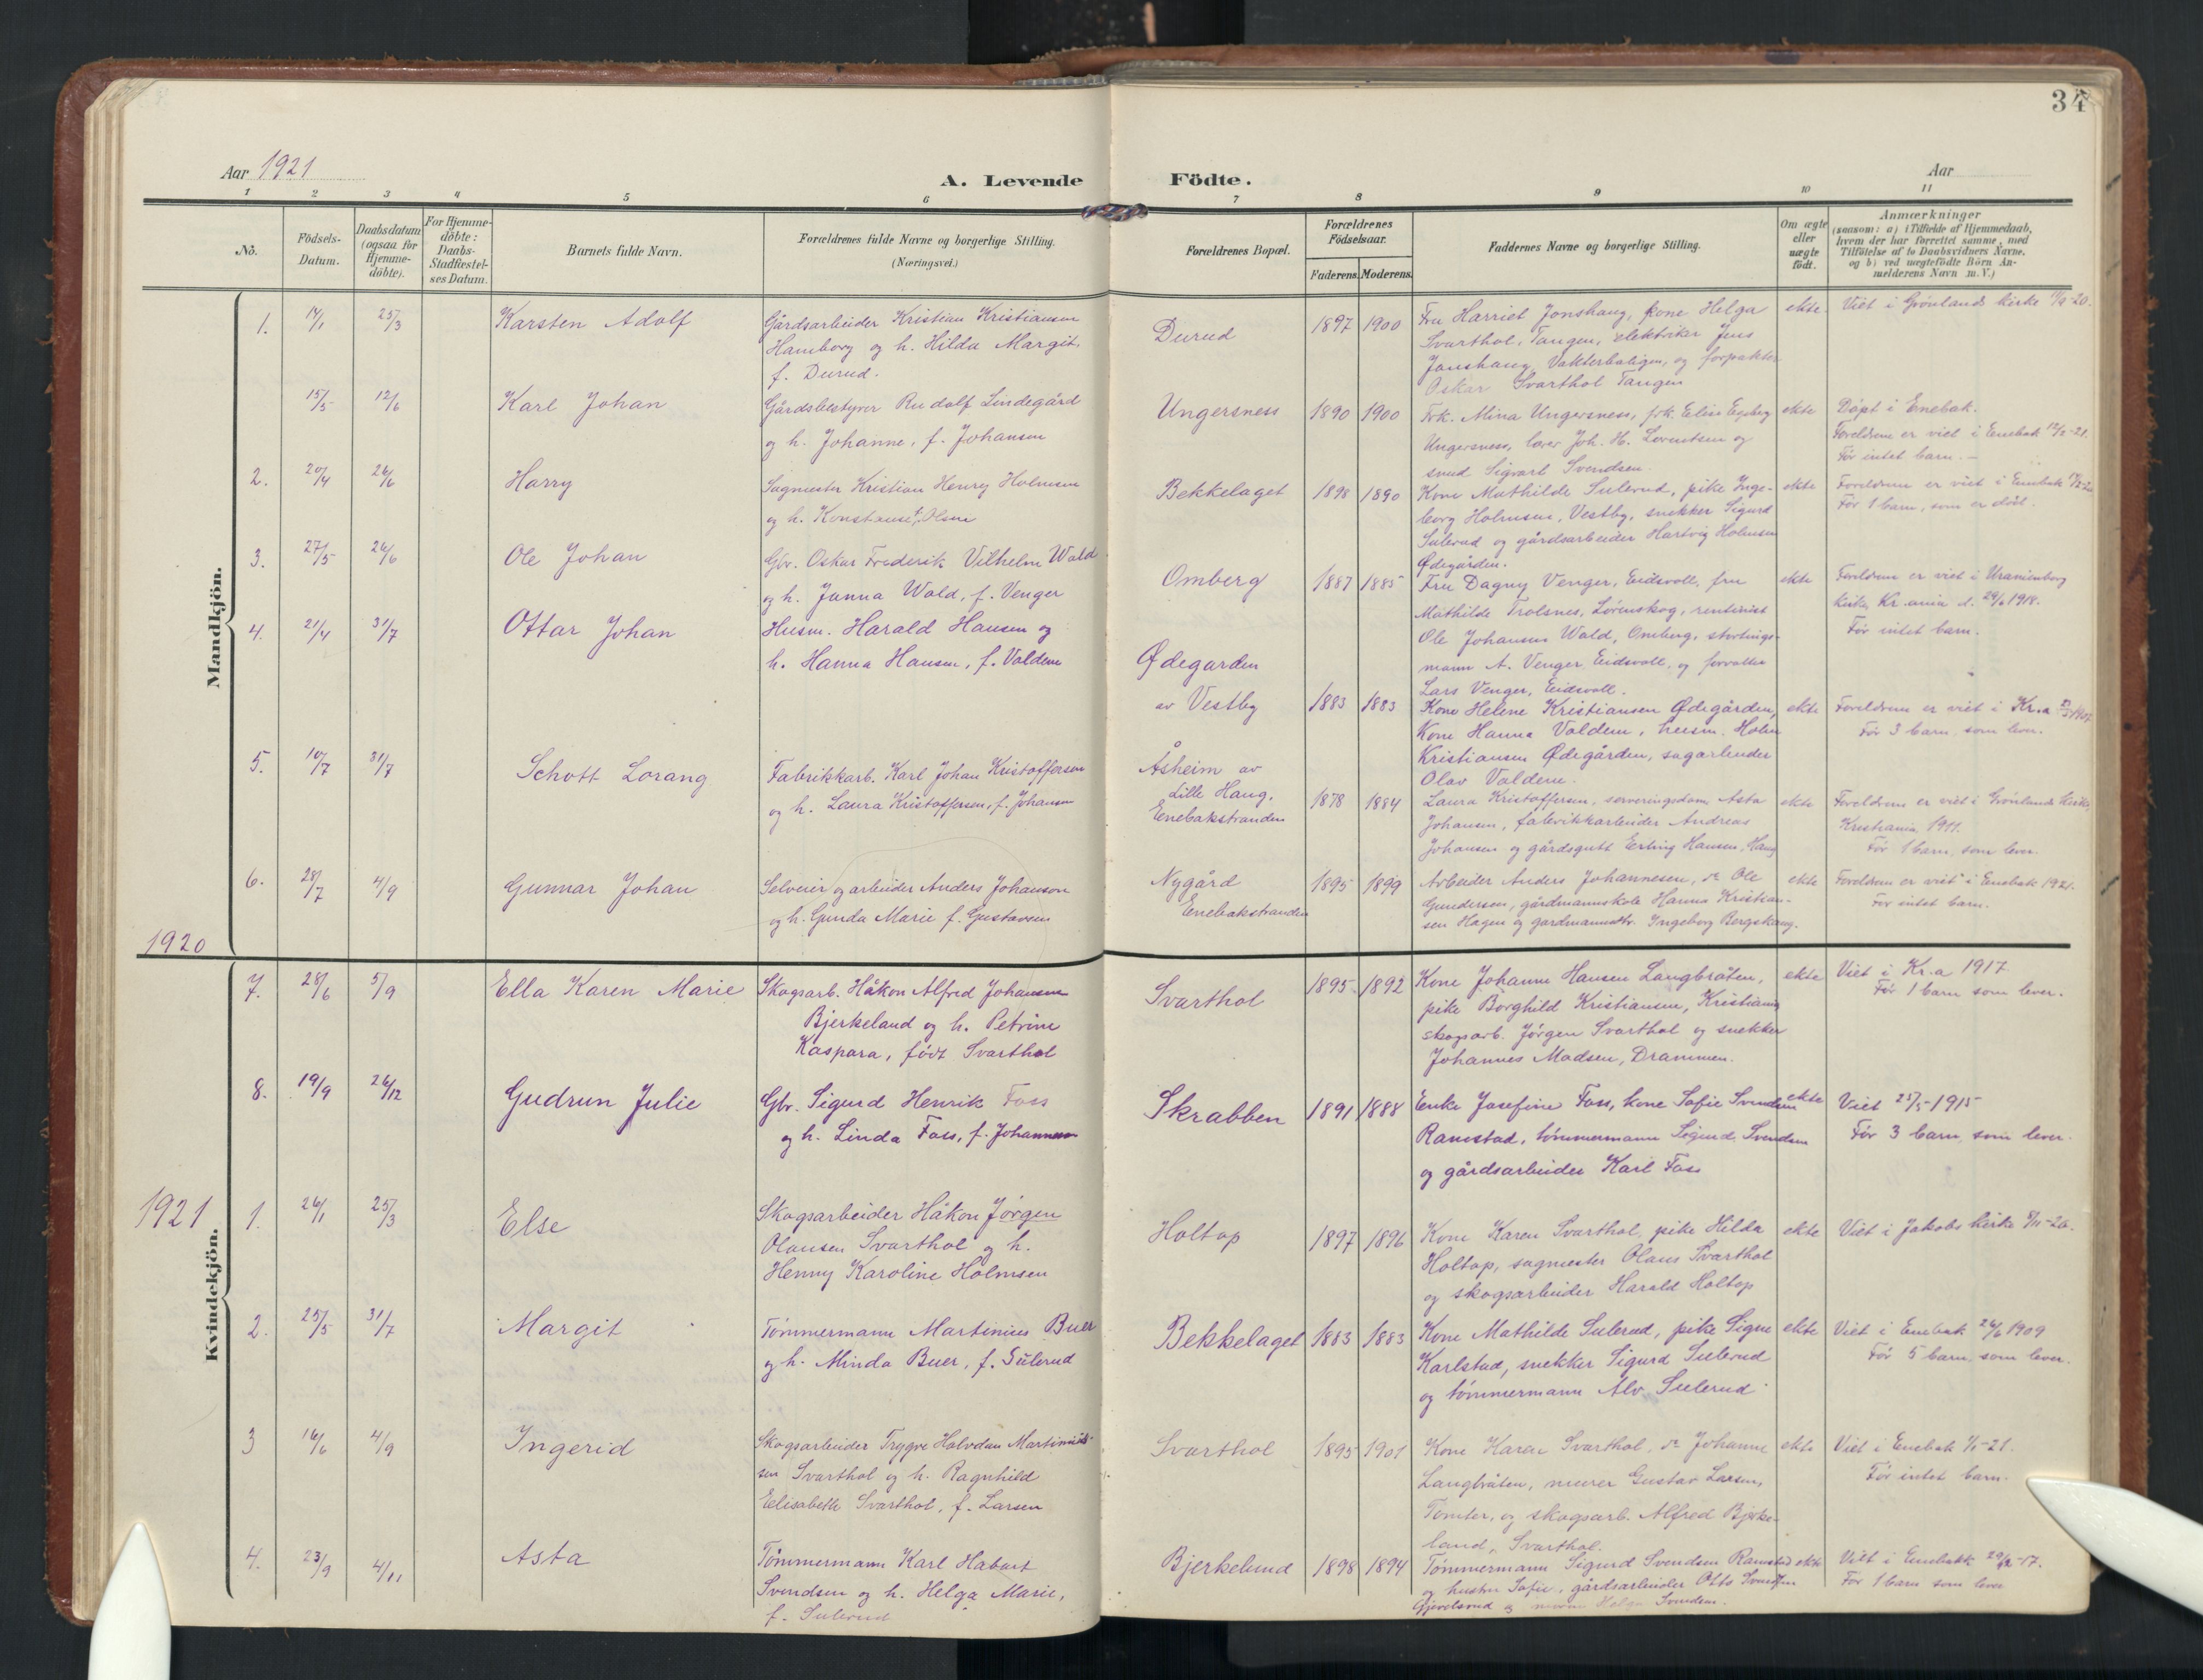 34
Aar 1921
A. Levende Födte.
Aar
1 2 3 4 5 6 7 8 9 10 11
No.
Födsels-Datum.
Daabsdatum (ogsaa for Hjemme-döbte).
For Hjemme-döbte: Daabs-Stadfæstel-ses Datum.
Barnets fulde Navn.
Forældrenes fulde Navne og borgerlige Stilling.
(Næringsvei.)
Forældrenes Bopæl.
Forældrenes Födselsaar.
Faderens. Moderens.
Faddernes Navne og borgerlige Stilling.
Om ægte eller uægte födt.
Anmærkninger
(saasom: a) i Tilfælde af Hjemmedaab,
hvem der har forrettet samme, med
Tilföielse af to Daabsvidners Navne,
og b) ved uægtefödte Börn An-
melderens Navn m. V.)
Mandkjön.
1. 14/1 25/3 Karsten Adolf
Gårdsarbeider Kristian Kristiansen
Hamborg og h. Hilda Margit,
f. Durud.
Durud 1897 1900
Fru Harriet Jonshaug, kone Helga
Svarthol, Tangen, elektriker Jens
Jonshaug, Vakterboligen, og forpakter
Oskar Svarthol Tangen
ekte. Viet i Grönlands kirke
15/5 12/6 Karl Johan
Gårdsbestyrer Rudolf Lindegård
og h. Johanne, f. Johansen
Ungersness 1890 1900
Frk. Mina Ungersness, frk. Elise Engebog
Ungersness, lærer Joh. H. Lorentsen og
smed Sigvart Svendsen.
ekte Döpt i Enebak.
Foreldrene er viet i Enebak 12/2-21.
Før intet barn. –
2. 20/4 26/6 Harry
Sagmester Kristian Henry Holmsen
og h. Konstanse f. Olsen
Bekkelaget 1898 1890
Kone Mathilde Sulerud, pike Inge-
borg Holmsen, Vestby, snekker Sigurd
Sulerud og gårdsarbeider Hartvig Holmsen
Ødegården.
ekte Foreldrene er viet i Enebak
Før 1 barn, som er död.
3. 27/5 26/6 Ole Johan
Gbr. Oskar Frederik Vilhelm Wold
og h. Janna Wold, f. Venger
Omberg 1887 1885
Fru Dagny Venger, Eidsvoll, fru
Mathilde Trolsnes, Lørenskog, rentenist
Ole Johansen Wold, Omberg, stortings-
mann A. Venger, Eidsvoll, og forvalter
Lars Venger, Eidsvoll.
ekte Foreldrene er viet i Uranienborg
kirke, Kr.ania d. 29/6 1918.
Før intet barn.
4. 21/4 31/7 Ottar Johan
Husm. Harald Hansen og
h. Hanna Hansen, f. Valdem
Ødegarden
av Vestby 1883 1883
Kone Helene Kristiansen Ødegården,
Kone Hanna Valdem, husm. Holm
Kristiansen Ødegården, sagarbeider
Olav Valdem.
ekte Foreldrene er viet i Kr.a
Før 3 barn, som lever.
5. 10/7 31/7 Schott Lorang
Fabrikkarb. Karl Johan Kristoffersen
og h. Laura Kristoffersen, f. Johansen
Åsheim av
Lille Haug,
Enebakstranden 1878 1884
Laura Kristoffersen, serveringsdam Asta
Johansen, fabrikkarbeider Andreas
Johansen og gårdsgutt Erling Hansen, Haug
ekte Foreldrene er viet i Grönlands kirke,
Kristiania, 1911.
Før 1 barn, som lever.
6. 28/7 4/9 Gunnar Johan
Selveier og arbeider Anders Johanson
og h. Gunda Marie f. Gustavsen
Nygård
Enebakstranden 1895 1899
Arbeider Anders Johannesen, do Ole
Gundersen, gårdmannskone Hanna Kristian-
sen Hagen og gardmannsdtr. Ingeborg Bergskaug.
ekte Foreldrene er viet i Enebak 1921.
Før intet barn.
1920
Kvindekjön.
7. 28/6 5/9 Ella Karen Marie
Skogsarb. Håkon Alfred Johansen
Bjerkeland og h. Petrine
Kaspara, født Svarthol
Svarthol 1895 1892
Kone Johanne Hansen Langbråten,
pike Borghild Kristiansen, Kristiania
skogsarb. Jørgen Svarthol og snekker
Johannes Madsen, Drammen.
ekte Viet i Kr.a 1917.
Før 1 barn som lever.
8. 19/9 26/12 Gudrun Julie
Gbr. Sigurd Henrik Foss
og h. Linda Foss, f. Johannesen
Skrabben 1891 1888
Enke Josefine Foss, kone Sofie Svendsen
Ramstad, tømmermann Sigurd Svendsen
og gårdsarbeider Karl Foss
ekte Viet 25/5-1915
Før 3 barn, som lever.
1921
1. 26/1 25/3 Else
Skogsarbeider Håkon Jørgen
Olausen Svarthol og h.
Henny Karoline Holmsen
Holtop 1897 1896
Kone Karen Svarthol, pike Hilda
Holtop, sagmester Olaus Svarthol
og skogsarbeider Harald Holtop
ekte Viet i Jakobs kirke
2. 25/5 31/7 Margit
Tömmermann Martinius Buer
og h. Minda Buer, f. Sulerud
Bekkelaget 1883 1883
Kone Mathilde Sulerud, pike Signe
Karlstad, snekker Sigurd Sulerud
og tömmermann Alv Sulerud
ekte Viet i Enebak 26/6 1909
Før 5 barn, som lever.
3 16/6 4/9 Ingerid
Skogsarbeider Trygve Halvdan Martinius
sen Svarthol og h. Ragnhild
Elisabeth Svarthol, f. Larsen
Svarthol 1895 1901
Kone Karen Svarthol, do Johanne
Langbråten, murer Gustav Larsen,
Tomter, og skogsarb. Alfred Bjerke-
land, Svarthol.
ekte Viet i Enebak 1/1-21.
Før intet barn.
4. 23/9 4/11 Asta
Tömmermann Karl Habart
Svendsen og h. Helga Marie,
f. Sulerud
Bjerkelund 1898 1894
Tömmermann Sigurd Svendsen Ramstad
og hustru Sofie, gårdsarbeider Otto Svendsen
Gjevelsrud og Helga Svendsen.
ekte Viet i Enebakk
Før 1 barn som lever